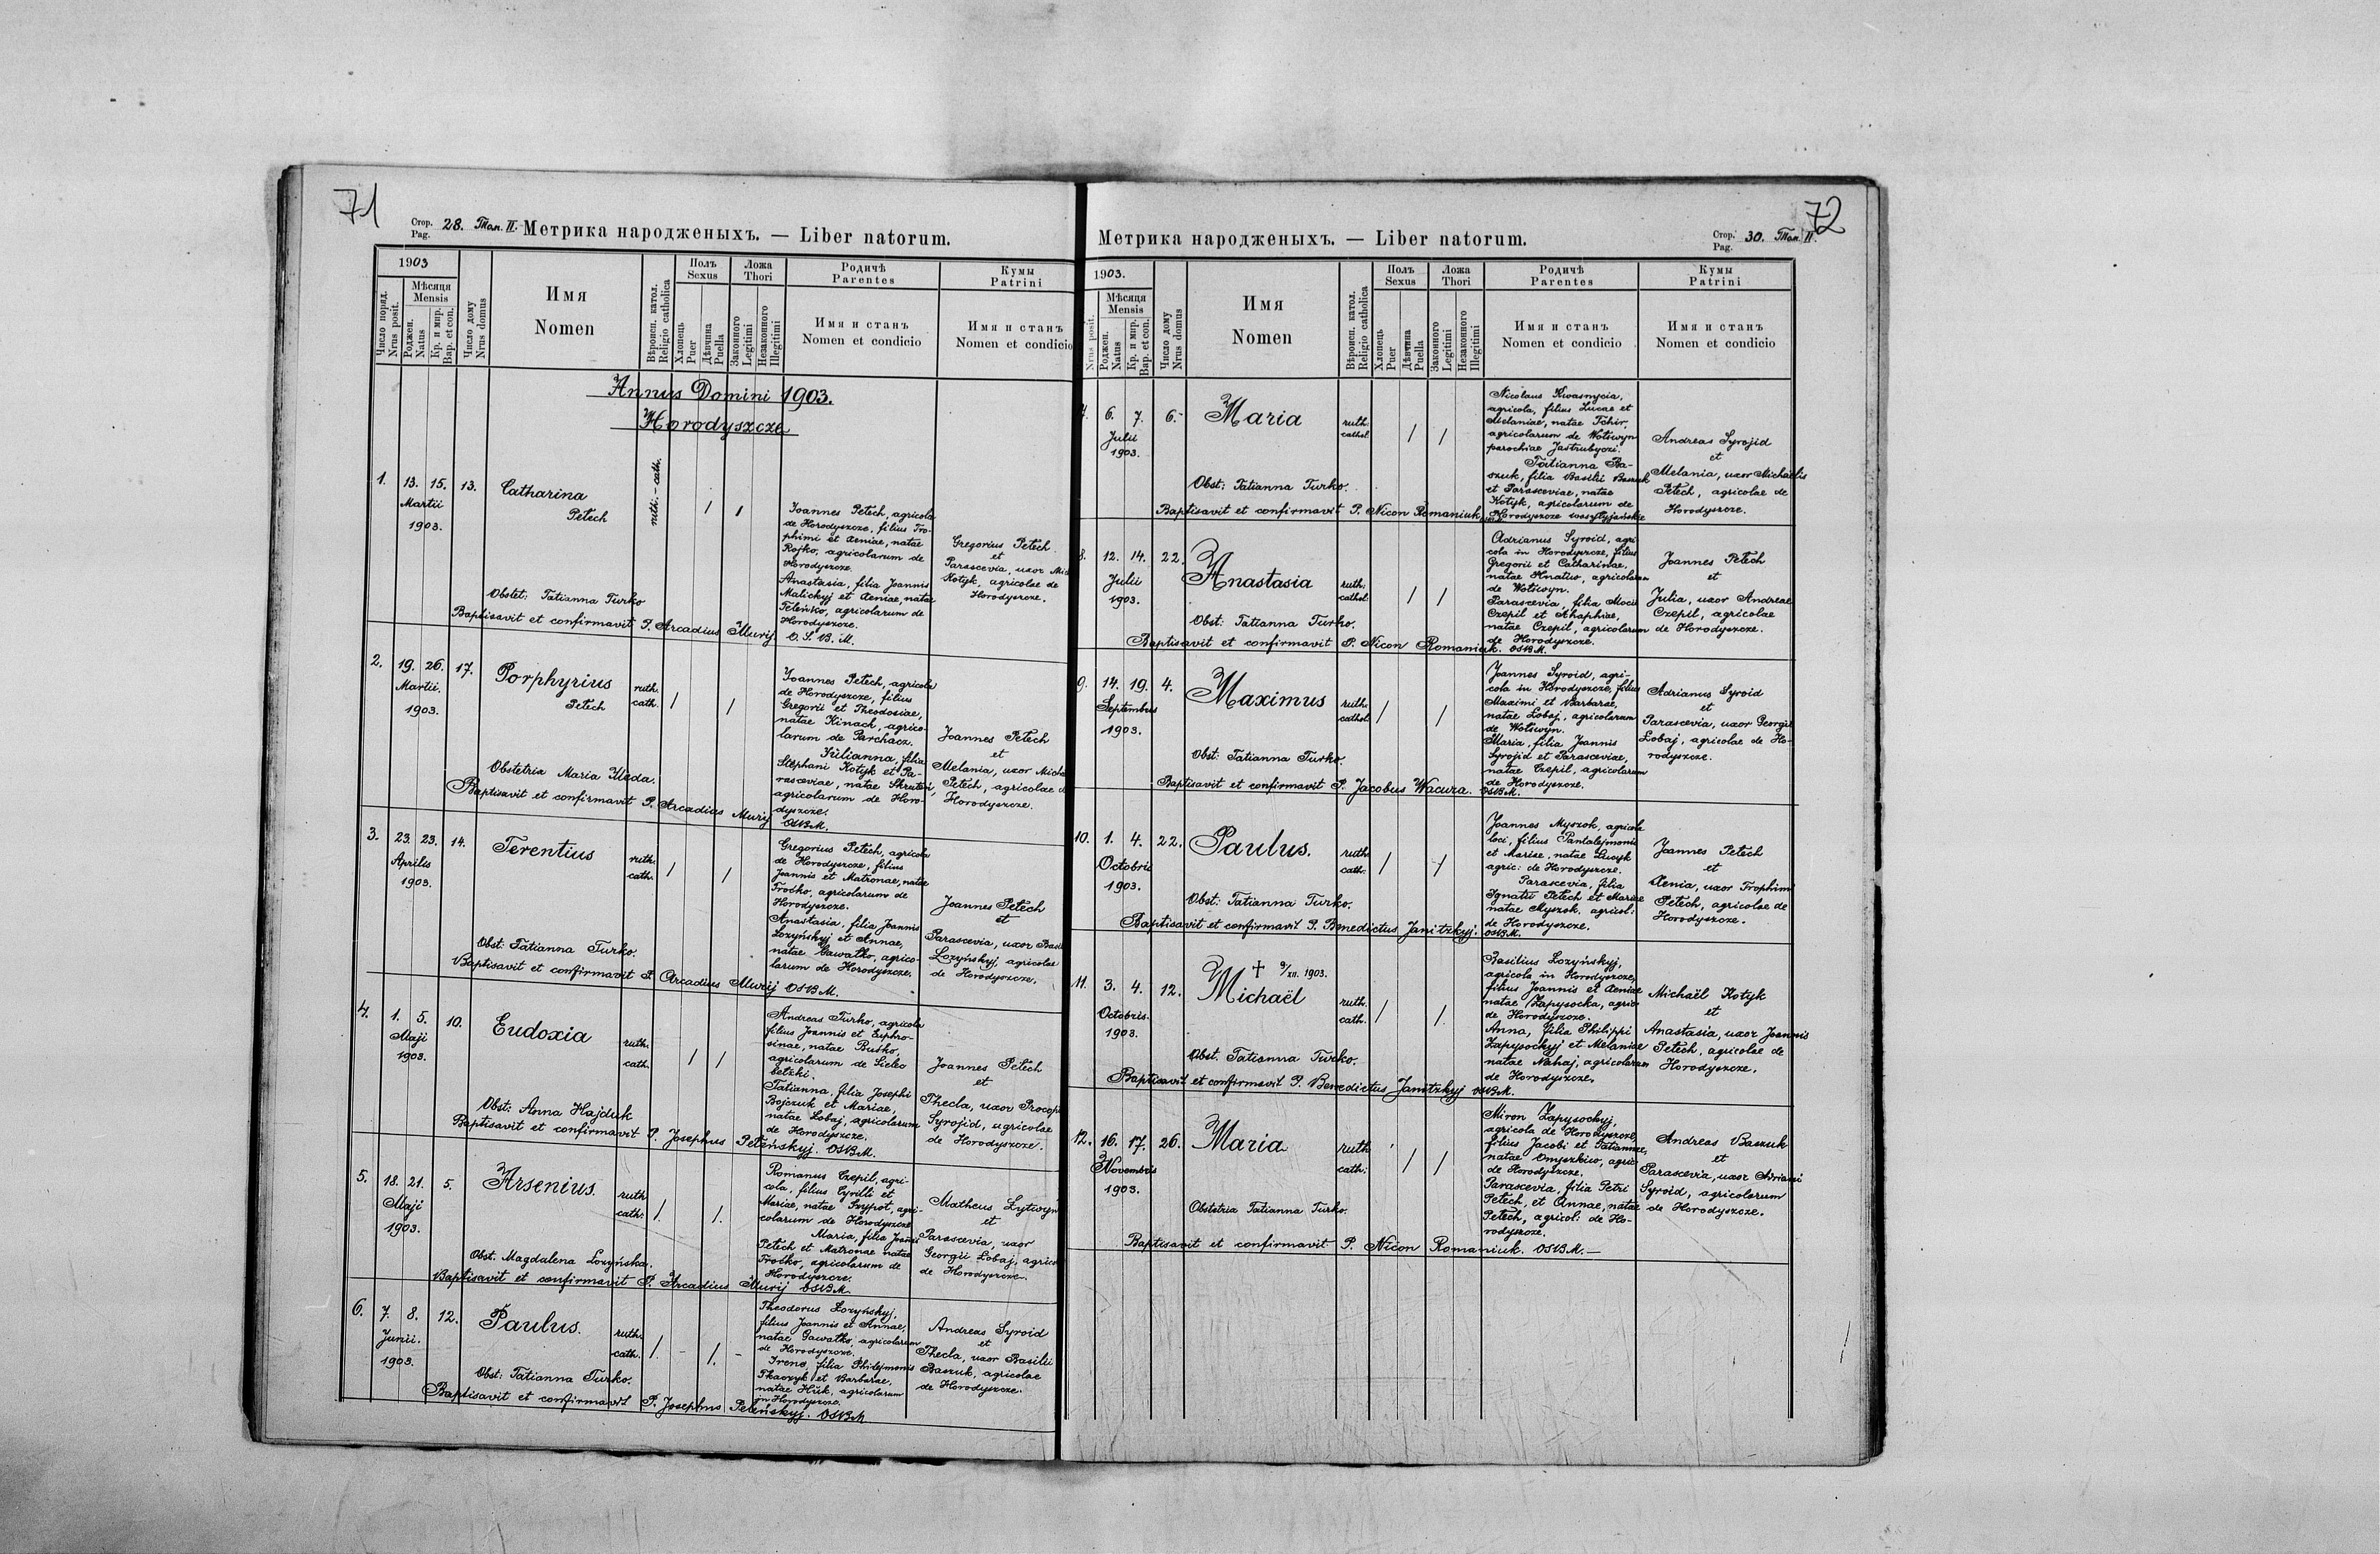 71
Стор. Pag. 28. Том. II. Метрика народженыхъ. — Liber natorum.
1903
Число поряд. Nrus posit.
Мѣсяця Mensis
Роджен. Natus
Кр. и мир. Bap. et con.
Число дому Nrus domus
Имя Nomen
Вѣроисп. катол. Religio catholica
Полъ Sexus
Хлопець Puer
Дѣвчина Puella
Ложа Thori
Законного Legitimi
Незаконного Illegitimi
Родичѣ Parentes
Имя и станъ Nomen et condicio
Кумы Patrini
Имя и станъ Nomen et condicio
Annus Domini 1903.
Horodyszcze
1. 13. 15. Martii 1903. 13.
Catharina
Petech
ruth.-cath. / /
Joannes Petech, agricola
de Horodyszcze, filius Tro-
phimi et Xeniae, natae
Rojko, agricolarum de
Horodyszcze.
Anastasia, filia Joannis
Malickyj et Xeniae, natae
Peleńko, agricolarum de
Horodyszcze.
Gregorius Petech
et
Parascevia, uxor Mich
Kotyk, agricolae de
Horodyszcze.
Obstet: Tatianna Turko
Baptisavit et confirmavit P. Arcadius Muryj O. S. B. M.
2. 19. 26. Martii. 1903. 17.
Porphyrius
Petech
ruth. cath. / /
Joannes Petech, agricola
de Horodyszcze, filius
Gregorii et Theodosiae,
natae Kinach, agrico-
larum de Parchacz.
Julianna, filia
Stephani Kotyk et Pa-
rasceviae, natae
agricolarum de Horo-
dyszcze.
Joannes Petech
et
Melania, uxor Micha
Petech, agricolae d
Horodyszcze.
Obstetrix Maria
Baptisavit et confirmavit P. Arcadius Muryj OSBM.
3. 23. 23. Aprilis 1903. 14.
Terentius
ruth. cath. / /
Gregorius Petech, agricola
de Horodyszcze, filius
Joannis et Matronae, natae
Troćko, agricolarum de
Horodyszcze.
Anastasia, filia Joannis
Łozyńskyj et Annae,
natae Gawałko, agrico-
larum de Horodyszcze.
Joannes Petech
et
Parascevia, uxor Basil
Łozyńskyj, agricolae
de Horodyszcze.
Obst: Tatianna Turko.
Baptisavit et confirmavit P. Arcadius Muryj OSBM.
4. 1. 5. Maji 1903. 10.
Eudoxia
ruth. cath. / /
Andreas Turko, agricola
filius Joannis et Euphro-
sinae, natae Buśko
agricolarum de Sielec
bełzki.
Tatianna, filia Josephi
Bojczuk et Mariae,
natae Łobaj, agricolarum
de Horodyszcze.
Joannes Petech
et
Thecla, uxor Procop
Syrojid, agricolae
de Horodyszcze.
Obst: Anna Hajduk
Baptisavit et confirmavit P. Josephus Peleńskyj. OSBM.
5. 18. 21. Maji 1903. 5.
Arsenius.
ruth cath. /. /.
Romanus Czepil, agri-
cola, filius Cyrilli et
Mariae, natae Szypot, agri-
colarum de Horodyszcze
Maria, filia Joannis
Petech et Matronae natae
Troćko, agricolarum de
Horodyszcze.
Matheus Łytwyn
et
Parascevia, uxor
Georgii Łobaj, agrico
de Horodyszcze.
Obst. Magdalena Łozyńska.
Baptisavit et confirmavit P. Arcadius Muryj OSBM
6. 7. 8. Junii. 1903. 12.
Paulus.
ruth. cath. /. – /. –
Theodorus Łozyńskyj.
filius Joannis et Annae,
natae Gawałko, agricolarum
de Horodyszcze.
Irene, filia Philejmonis
Tkaczyk et Barbarae,
natae Huk, agricolarum
in Horodyszcze.
Andreas Syroid
et
Thecla, uxor Basilii
Baszuk, agricolae
de Horodyszcze.
Obst: Tatianna Turko.
Baptisavit et confirmavit P. Josephus Peleńskyj. OSBM
72
Метрика народженыхъ. — Liber natorum.
Стор. Pag. 30. Том. II.
1903.
Nrus posit.
Мѣсяця Mensis
Роджен. Natus
Кр. и мир. Bap. et con.
Число дому Nrus domus
Имя Nomen
Вѣроисп. катол. Religio catholica
Полъ Sexus
Хлопець Puer
Дѣвчина Puella
Ложа Thori
Законного Legitimi
Незаконного Illegitimi
Родичѣ Parentes
Имя и станъ Nomen et condicio
Кумы Patrini
Имя и станъ Nomen et condicio
7. 6. 7. Julii 1903. 6.
Maria
ruth. cathol. / /
Nicolaus Kwasnycia,
agricola, filius Lucae et
Melaniae, natae Tchir,
agricolarum de Wolswyn
parochiae Jastrubyczi.
Tatianna Ba-
szuk, filia Basilii Baszuk
et Parasceviae, natae
Kotyk, agricolarum de
Horodyszcze
Andreas Syrojid
et
Melania, uxor Michaelis
Petech, agricolae de
Horodyszcze.
Obst: Tatianna Turko.
Baptisavit et confirmavit P. Nicon Romaniuk
8. 12. 14. Julii 1903. 22.
Anastasia
ruth. cathol / /
Adrianus Syroid, agri
cola in Horodyszcze, filius
Gregorii et Catharinae,
natae Hnatiw, agricolarum
de Wolswyn.
Parascevia, filia Mocii
Czepil et Ahaphiae,
natae Czepil, agricolarum
de Horodyszcze.
Joannes Petech
et
Julia, uxor Andreae
Czepil, agricolae
de Horodyszcze.
Obst: Tatianna Turko.
Baptisavit et confirmavit P. Nicon Romaniuk. OSBM.
9. 14. 19. Septembris 1903. 4.
Maximus
ruth. cathol / /
Joannes Syroid, agri-
cola in Horodyszcze, filius
Maximi et Barbarae,
natae Łobaj, agricolarum
de Wolswyn.
Maria, filia Joannis
Syrojid et Parasceviae,
natae Czepil, agricolarum
de Horodyszcze.
Adrianus Syroid
et
Parascevia, uxor Georgii
Łobaj, agricolae de Ho-
rodyszcze.
Obst: Tatianna Turko.
Baptisavit et confirmavit P. Jacobus Wacura. OSBM.
10. 1. 4. Octobris 1903. 22.
Paulus.
ruth. cath. / /
Joannes Myszok, agricola
loci, filius Pantalejmonis
et Mariae, natae Łucyk
agric: de Horodyszcze.
Parascevia, filia
Ignatii Petech et Mariae
natae Myszok, agricol:
de Horodyszcze.
Joannes Petech
et
Xenia, uxor Trophimi
Petech, agricolae de
Horodyszcze.
Obst: Tatianna Turko.
Baptisavit et confirmavit P. Benedictus Janitzkyj. OSBM.
11. 3. 4. Octobris. 1903. 12.
† 9/XII. 1903.
Michaël
ruth. cath. / /.
Basilius Łozyńskyj,
agricola in Horodyszcze,
filius Joannis et Xeniae
natae Zapysocka, agric:
de Horodyszcze.
Anna, filia Philippi
Zapysockyj et Melaniae
natae Nahaj, agricolarum
de Horodyszcze.
Michaël Kotyk
et
Anastasia, uxor Joannis
Petech, agricolae de
Horodyszcze.
Obst. Tatianna Turko.
Baptisavit et confirmavit P. Benedictus Janitzkyj OSBM.
12. 16. 17. Novembris 1903. 26.
Maria
ruth cath. / /
Miron Zapysockyj,
agricola de Horodyszcze,
filius Jacobi et Tatiannae,
natae Omyszkiw, agric:
de Horodyszcze.
Parascevia, filia Petri
Petech, et Annae, natae
Petech, agricol: de Ho-
rodyszcze.
Andreas Baszuk
et
Parascevia, uxor Adriani
Syroid, agricolarum
de Horodyszcze.
Obstetrix Tatianna Turko.
Baptisavit et confirmavit P. Nicon Romaniuk. OSBM. —